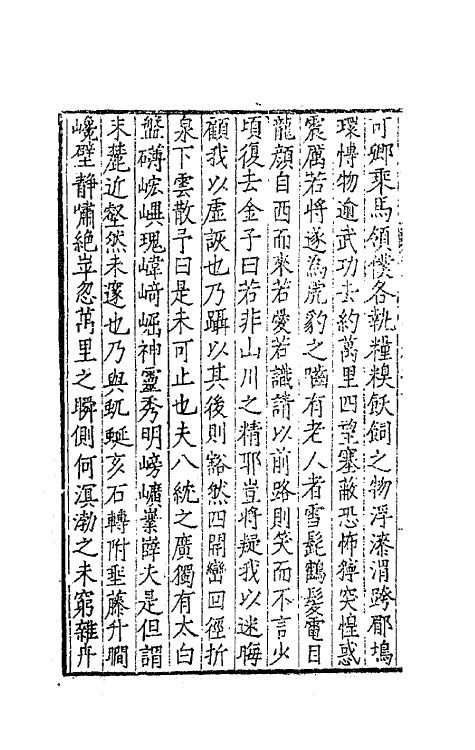 可卿乘馬領僕各執糧糗飫飼之物浮漆渭跨郿塢
環愽物逾武功去約萬里四望塞蔽恐怖獐突惶惑
震厲若將遂為虎豹之嚙有老人者雪髭鶴髮電目
龍顔自西而來若愛若識請以前路則笑而不言少
頃復去金子曰若非山川之精耶豈將疑我以迷晦
顧我以虛誑也乃躡以其後則豁然四開巒回徑折
泉下雲散予曰是未可止也夫八紘之廣獨有太白
盤礴㟅㠘瑰嶂﨑崛神靈秀明嵭㠠嶪嶭夫是但謂
末麓近壑然未邃也乃與虬蜒亥石轉附垂藤升瞯
巉壁靜嘯絶崒忽萬里之瞬側何溟渤之未窮雜丹